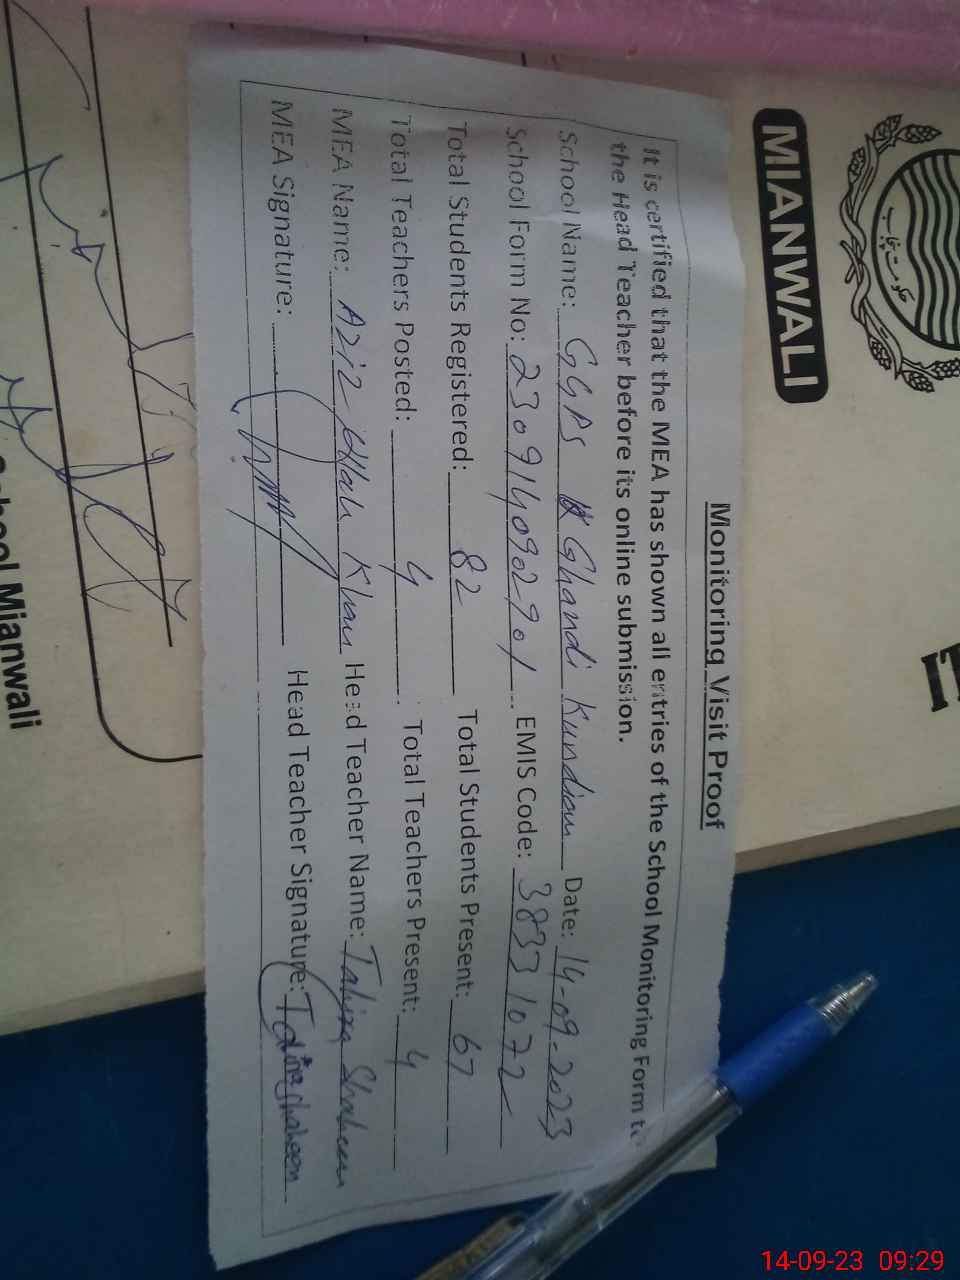 حکومت پنجاب
MIANWALI
Monitoring Visit Proof
It is certified that the MEA has shown all entries of the School Monitoring Form to
the Head Teacher before its online submission.
School Name: GGPS Ghandi Kundian Date: 14-09-2023
School Form No: 2309140902901 EMIS Code: 38331072
Total Students Registered: 82 Total Students Present: 67
Total Teachers Posted: 4 Total Teachers Present: 4
MEA Name: Aziz Ullah Khan Head Teacher Name: Tahira Shaheen
MEA Signature: Head Teacher Signature: Tahira Shaheen
School Mianwali
14-09-23 09:29